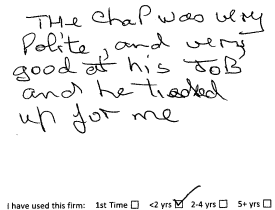 THE Chap was very
Polite, and very
good at his JOB
and he tidied
up for me
I have used this firm: 1st Time ☐ <2 yrs ☑ 2-4 yrs ☐ 5+ yrs ☐